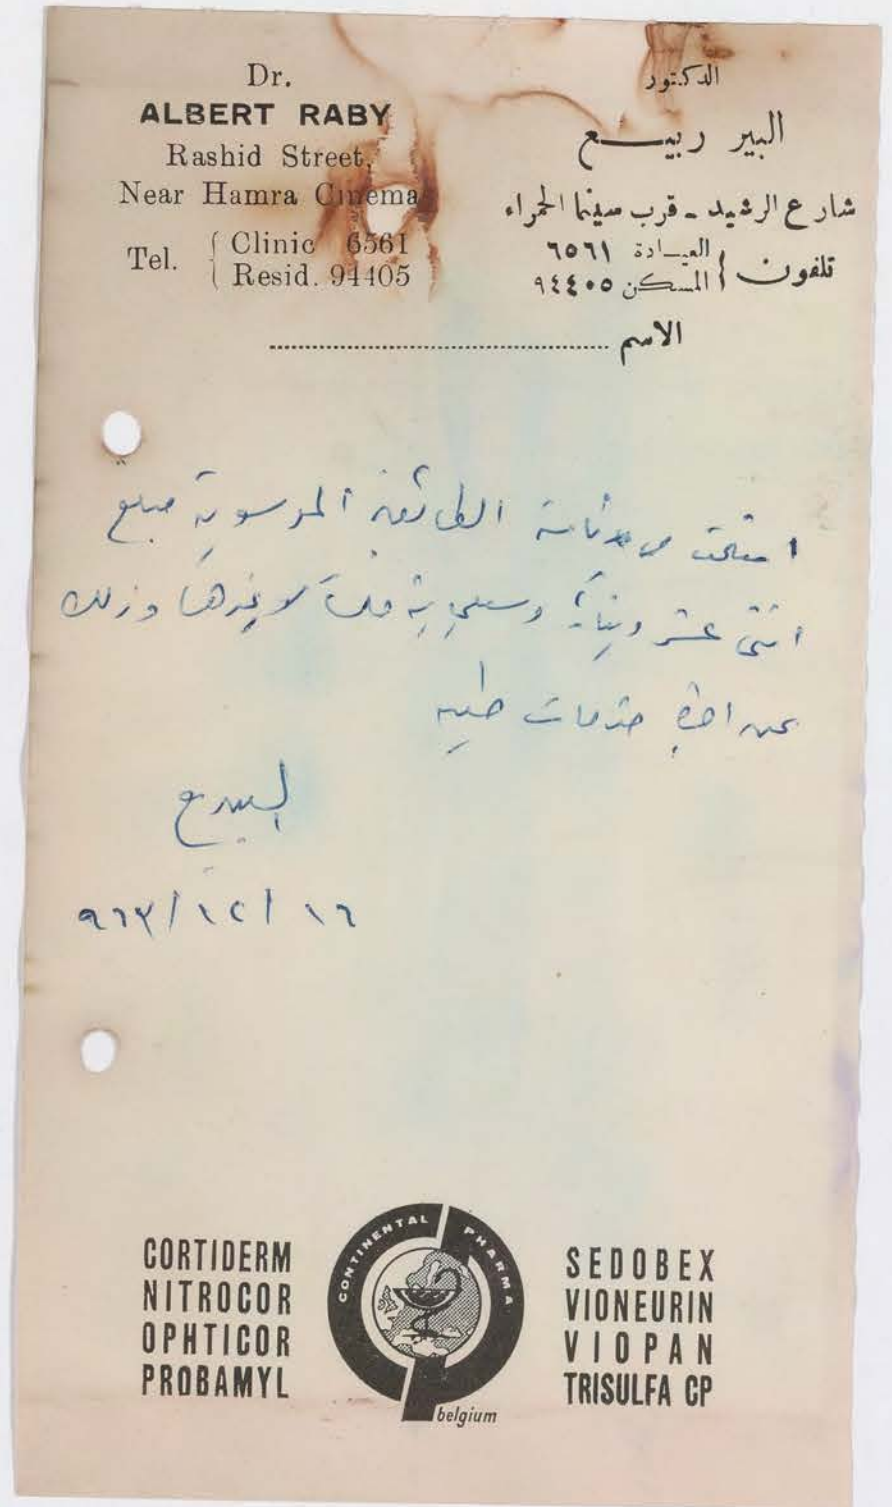 Dr.
ALBERT RABY
Rashid Street,
Near Hamra Cinema
Tel. { Clinic 6561
Resid. 94405
الدكتور
البير ربيع
شارع الرشيد - قرب سينما الحمراء
تلفون { العيادة ٦٥٦١
المسكن ٩٤٤٠٥
الاسم
استلمت من رئاسة الطائفة الموسوية مبلغ
اثنى عشر دينار لا غيرها وذلك
عن اجرة خدمات طبية
البير ربيع
١٦ / ١٢ / ٩٦٣
CORTIDERM
NITROCOR
OPHTICOR
PROBAMYL
CONTINENTAL PHARMA
belgium
SEDOBEX
VIONEURIN
VIOPAN
TRISULFA CP